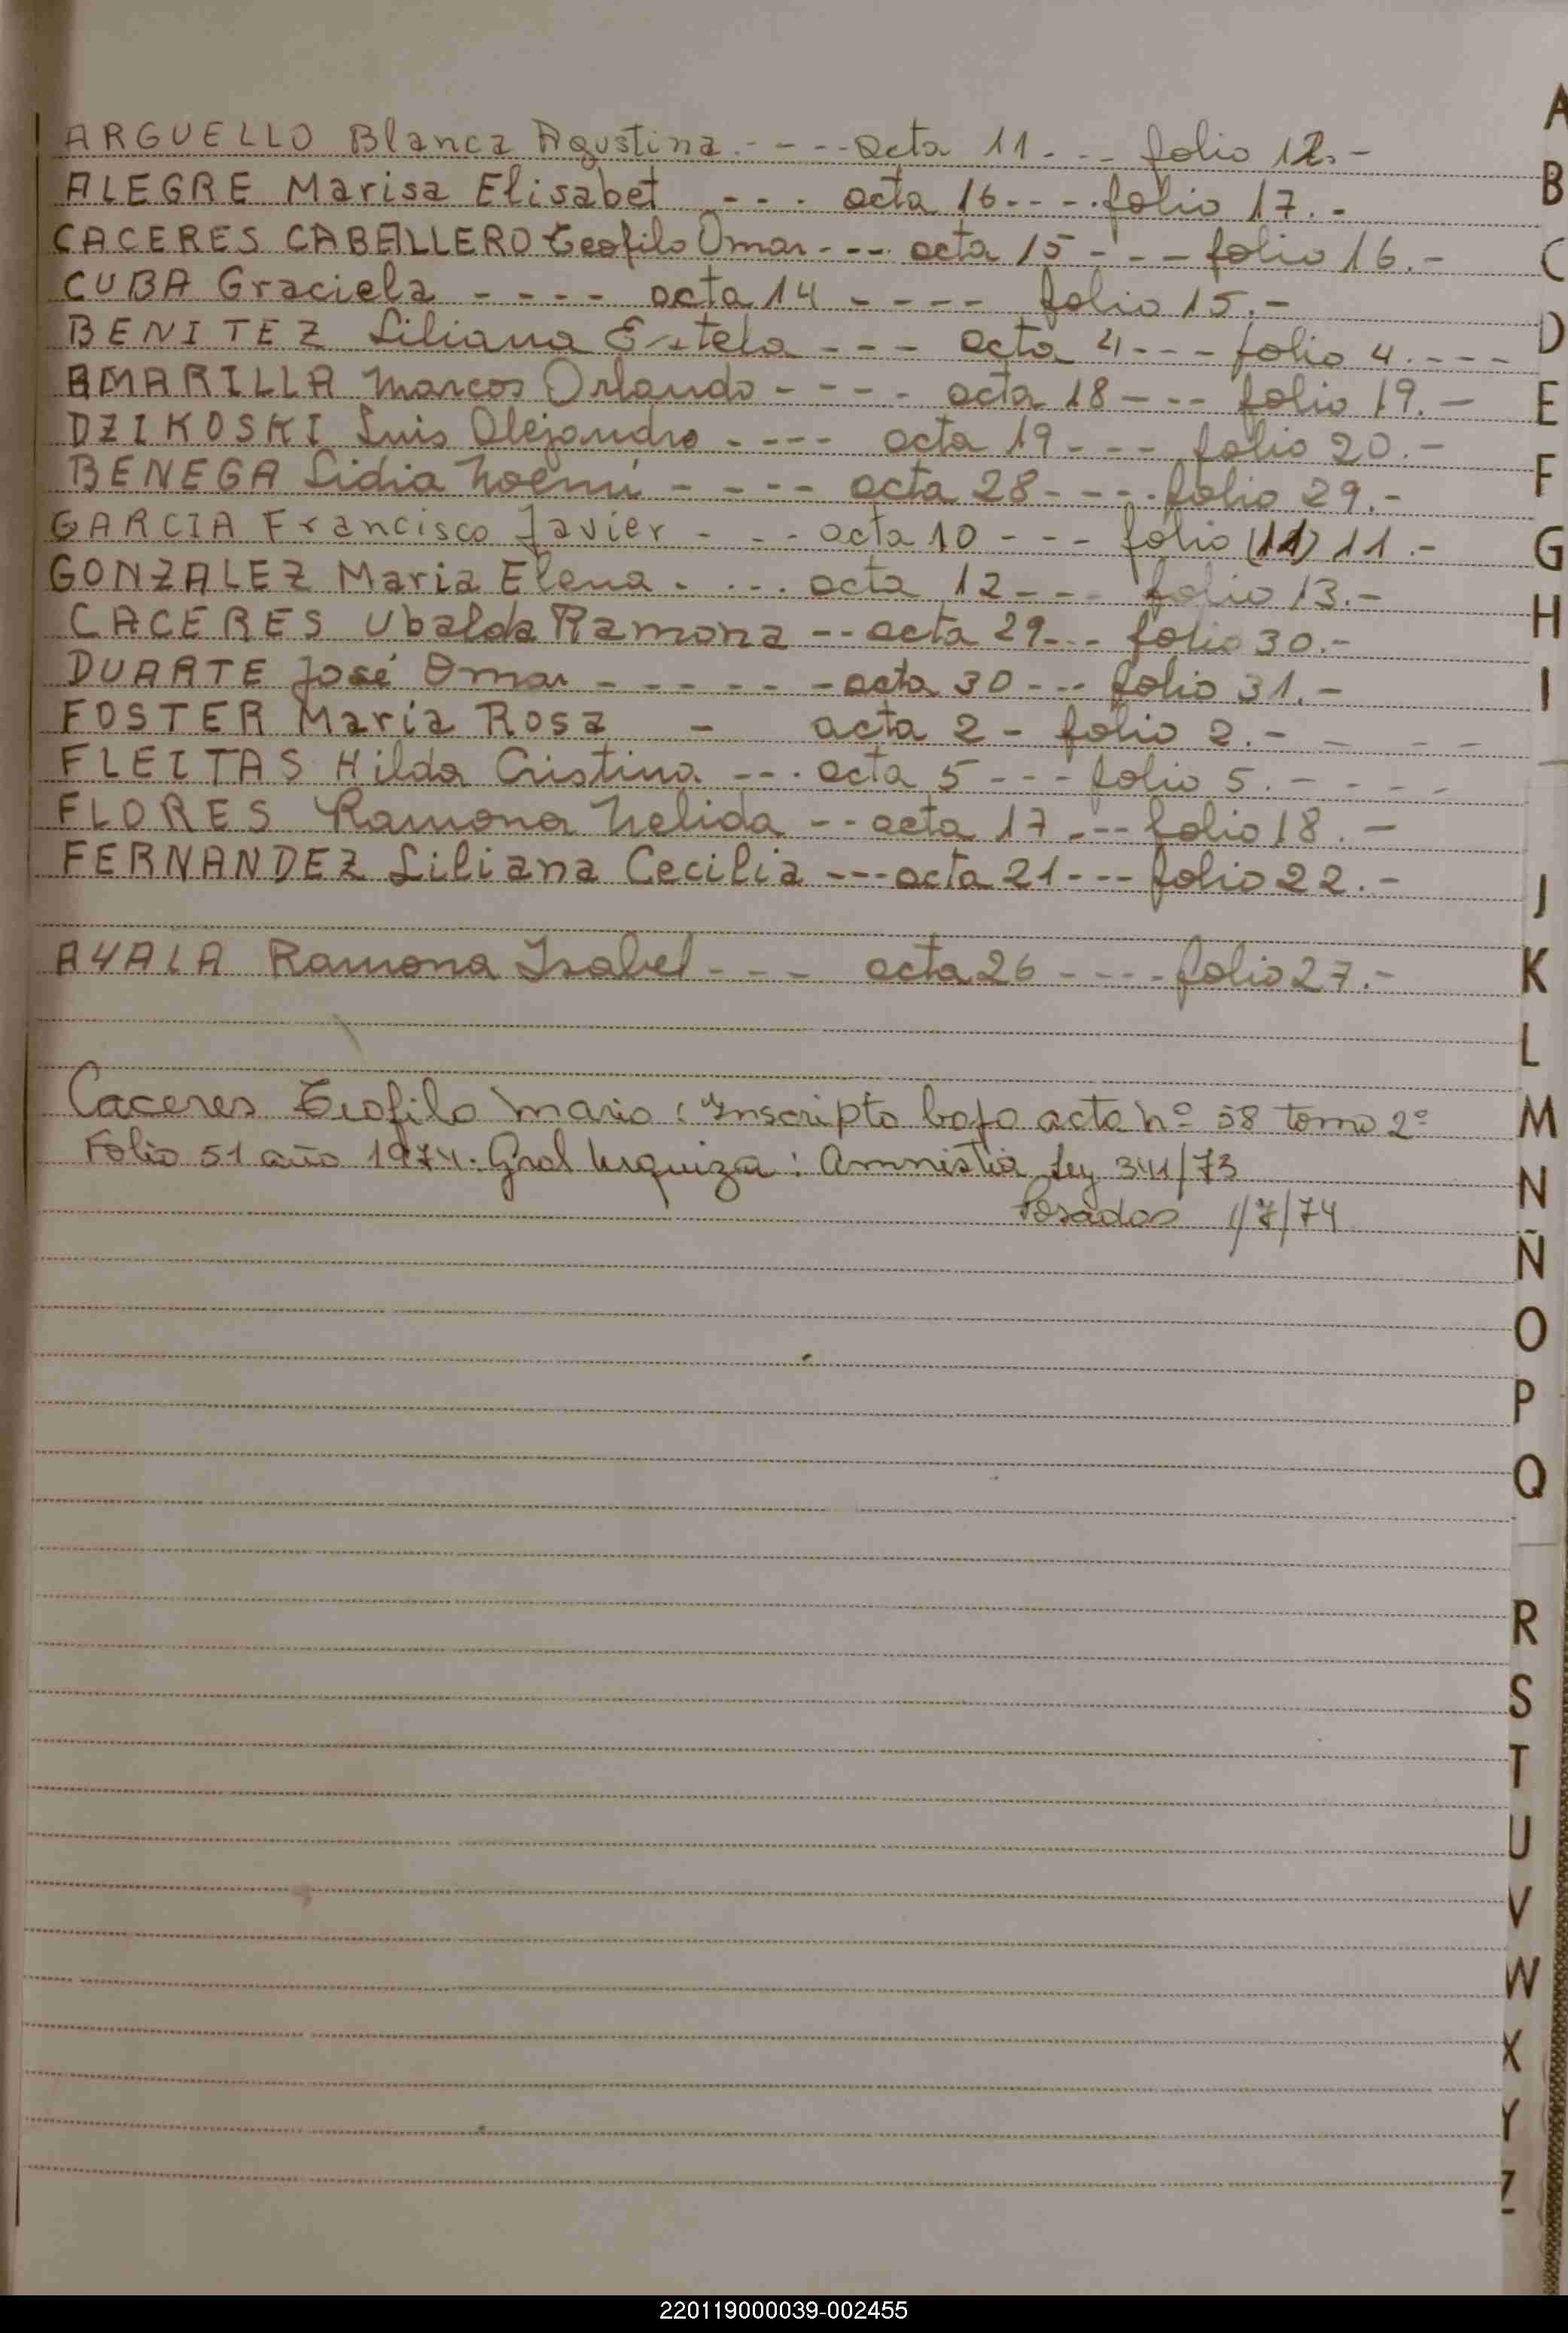 ARGUELLO Blanca Agustina. - - - - acta 11 - - - folio 12. -
ALEGRE Marisa Elisabet - - - acta 16 - - - - folio 17. -
CACERES CABALLERO Teofilo Omar - - - acta 15 - - - folio 16. -
CUBA Graciela - - - - acta 14 - - - - folio 15. -
BENITEZ Liliana Estela - - - acta 4 - - - folio 4. - - - -
AMARILLA Marcos Orlando - - - - acta 18 - - - folio 19. -
DZIKOSKI Luis Alejandro - - - - acta 19 - - - folio 20. -
BENEGA Lidia Noemí - - - - acta 28 - - - - folio 29. -
GARCIA Francisco Javier - - - acta 10 - - - folio (11) 11. -
GONZALEZ Maria Elena - - - - acta 12 - - - folio 13. -
CACERES Ubalda Ramona - - acta 29 - - - folio 30. -
DUARTE José Omar - - - - - - acta 30 - - - folio 31. -
FOSTER María Rosa - acta 2 - folio 2. - - - - -
FLEITAS Hilda Cristina - - - acta 5 - - - folio 5. - - - -
FLORES Ramona Nelida - - acta 17 - - - folio 18. -
FERNANDEZ Liliana Cecilia - - - acta 21 - - - folio 22. -
AYALA Ramona Isabel - - - acta 26 - - - - folio 27. -
Caceres Teofilo Mario: Inscripto bajo acta nº 58 tomo 2º
Folio 51 año 1974. Gral Urquiza: Amnistia Ley 341/73
Posadas 1/7/74
A
B
C
D
E
F
G
H
I
J
K
L
M
N
Ñ
O
P
Q
R
S
T
U
V
W
X
Y
Z
220119000039-002455